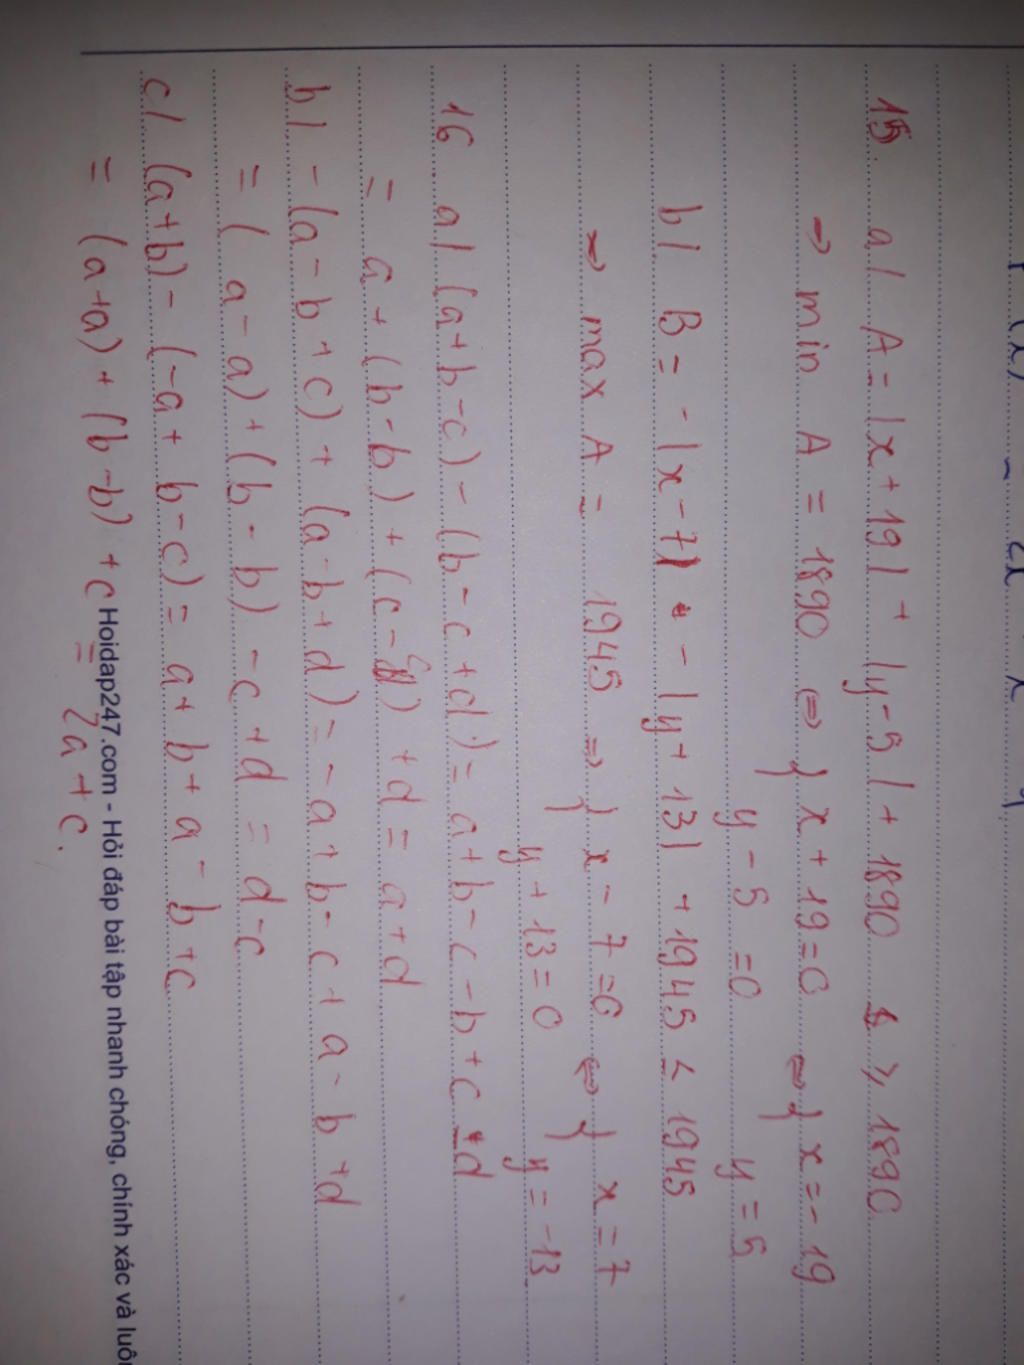 15. a/ A = |x+19| + |y-5| + 1890 ≥ 1890
=> min A = 1890 <=> { x+19=0 <=> { x=-19
y-5=0 y=5
b/ B = -|x-7| - |y+13| + 1945 ≤ 1945
=> max A = 1945 => { x-7=0 <=> { x=7
y+13=0 y=-13
16 a/ (a+b-c) - (b-c+d) = a+b-c-b+c-d
= a+(b-b)+(c-c)+d = a+d
b/ -(a-b+c)+(a-b+d) = -a+b-c+a-b+d
= (a-a)+(b-b)-c+d = d-c
c/ (a+b)-(-a+b-c) = a+b+a-b+c
= (a+a)+(b-b)+c = 2a+c.
Hoidap247.com - Hỏi đáp bài tập nhanh chóng, chính xác và